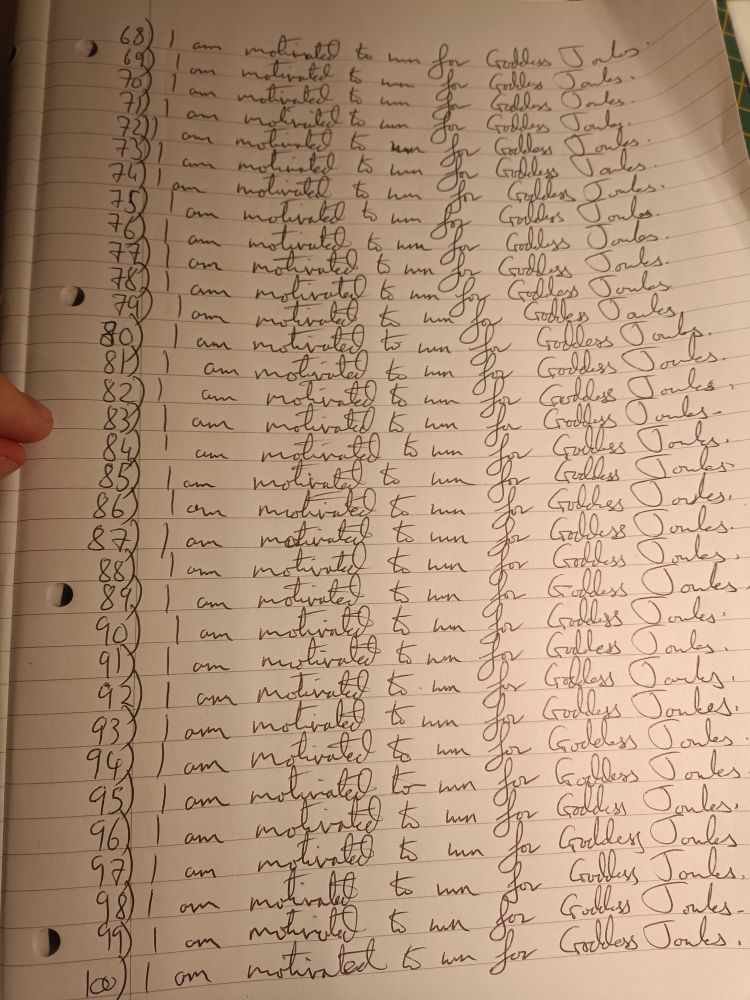 68) I am motivated to run for Goddess Joules.
69) I am motivated to run for Goddess Joules.
70) I am motivated to run for Goddess Joules.
71) I am motivated to run for Goddess Joules.
72) I am motivated to run for Goddess Joules.
73) I am motivated to run for Goddess Joules.
74) I am motivated to run for Goddess Joules.
75) I am motivated to run for Goddess Joules.
76) I am motivated to run for Goddess Joules.
77) I am motivated to run for Goddess Joules.
78) I am motivated to run for Goddess Joules.
79) I am motivated to run for Goddess Joules.
80) I am motivated to run for Goddess Joules.
81) I am motivated to run for Goddess Joules.
82) I am motivated to run for Goddess Joules.
83) I am motivated to run for Goddess Joules.
84) I am motivated to run for Goddess Joules.
85) I am motivated to run for Goddess Joules.
86) I am motivated to run for Goddess Joules.
87) I am motivated to run for Goddess Joules.
88) I am motivated to run for Goddess Joules.
89) I am motivated to run for Goddess Joules.
90) I am motivated to run for Goddess Joules.
91) I am motivated to run for Goddess Joules.
92) I am motivated to run for Goddess Joules.
93) I am motivated to run for Goddess Joules.
94) I am motivated to run for Goddess Joules.
95) I am motivated to run for Goddess Joules.
96) I am motivated to run for Goddess Joules.
97) I am motivated to run for Goddess Joules
98) I am motivated to run for Goddess Joules.
99) I am motivated to run for Goddess Joules.
100) I am motivated to run for Goddess Joules.